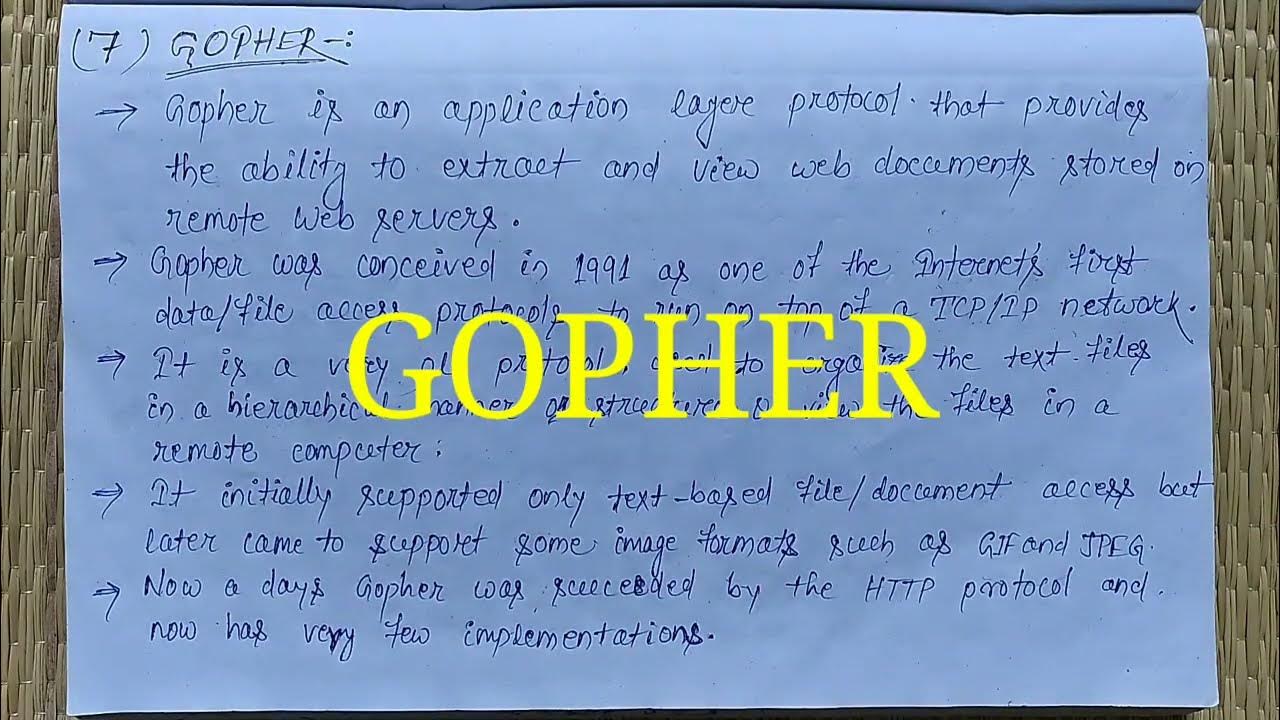 (7) GOPHER-:
→ Gopher is an application layere protocol that provides
the ability to extract and view web documents stored on
remote web servers.
→ Gopher was conceived in 1991 as one of the Internet's first
data/file access protocols to run on top of a TCP/IP network.
→ It is a very old protocol used to organise the text-files
in a hierarchical manner view the files in a
remote computer.
→ It initially supported only text-based file/document access but
later came to support some image formats such as GIF and JPEG.
→ Now a days Gopher was succeeded by the HTTP protocol and
now has very few implementations.
GOPHER